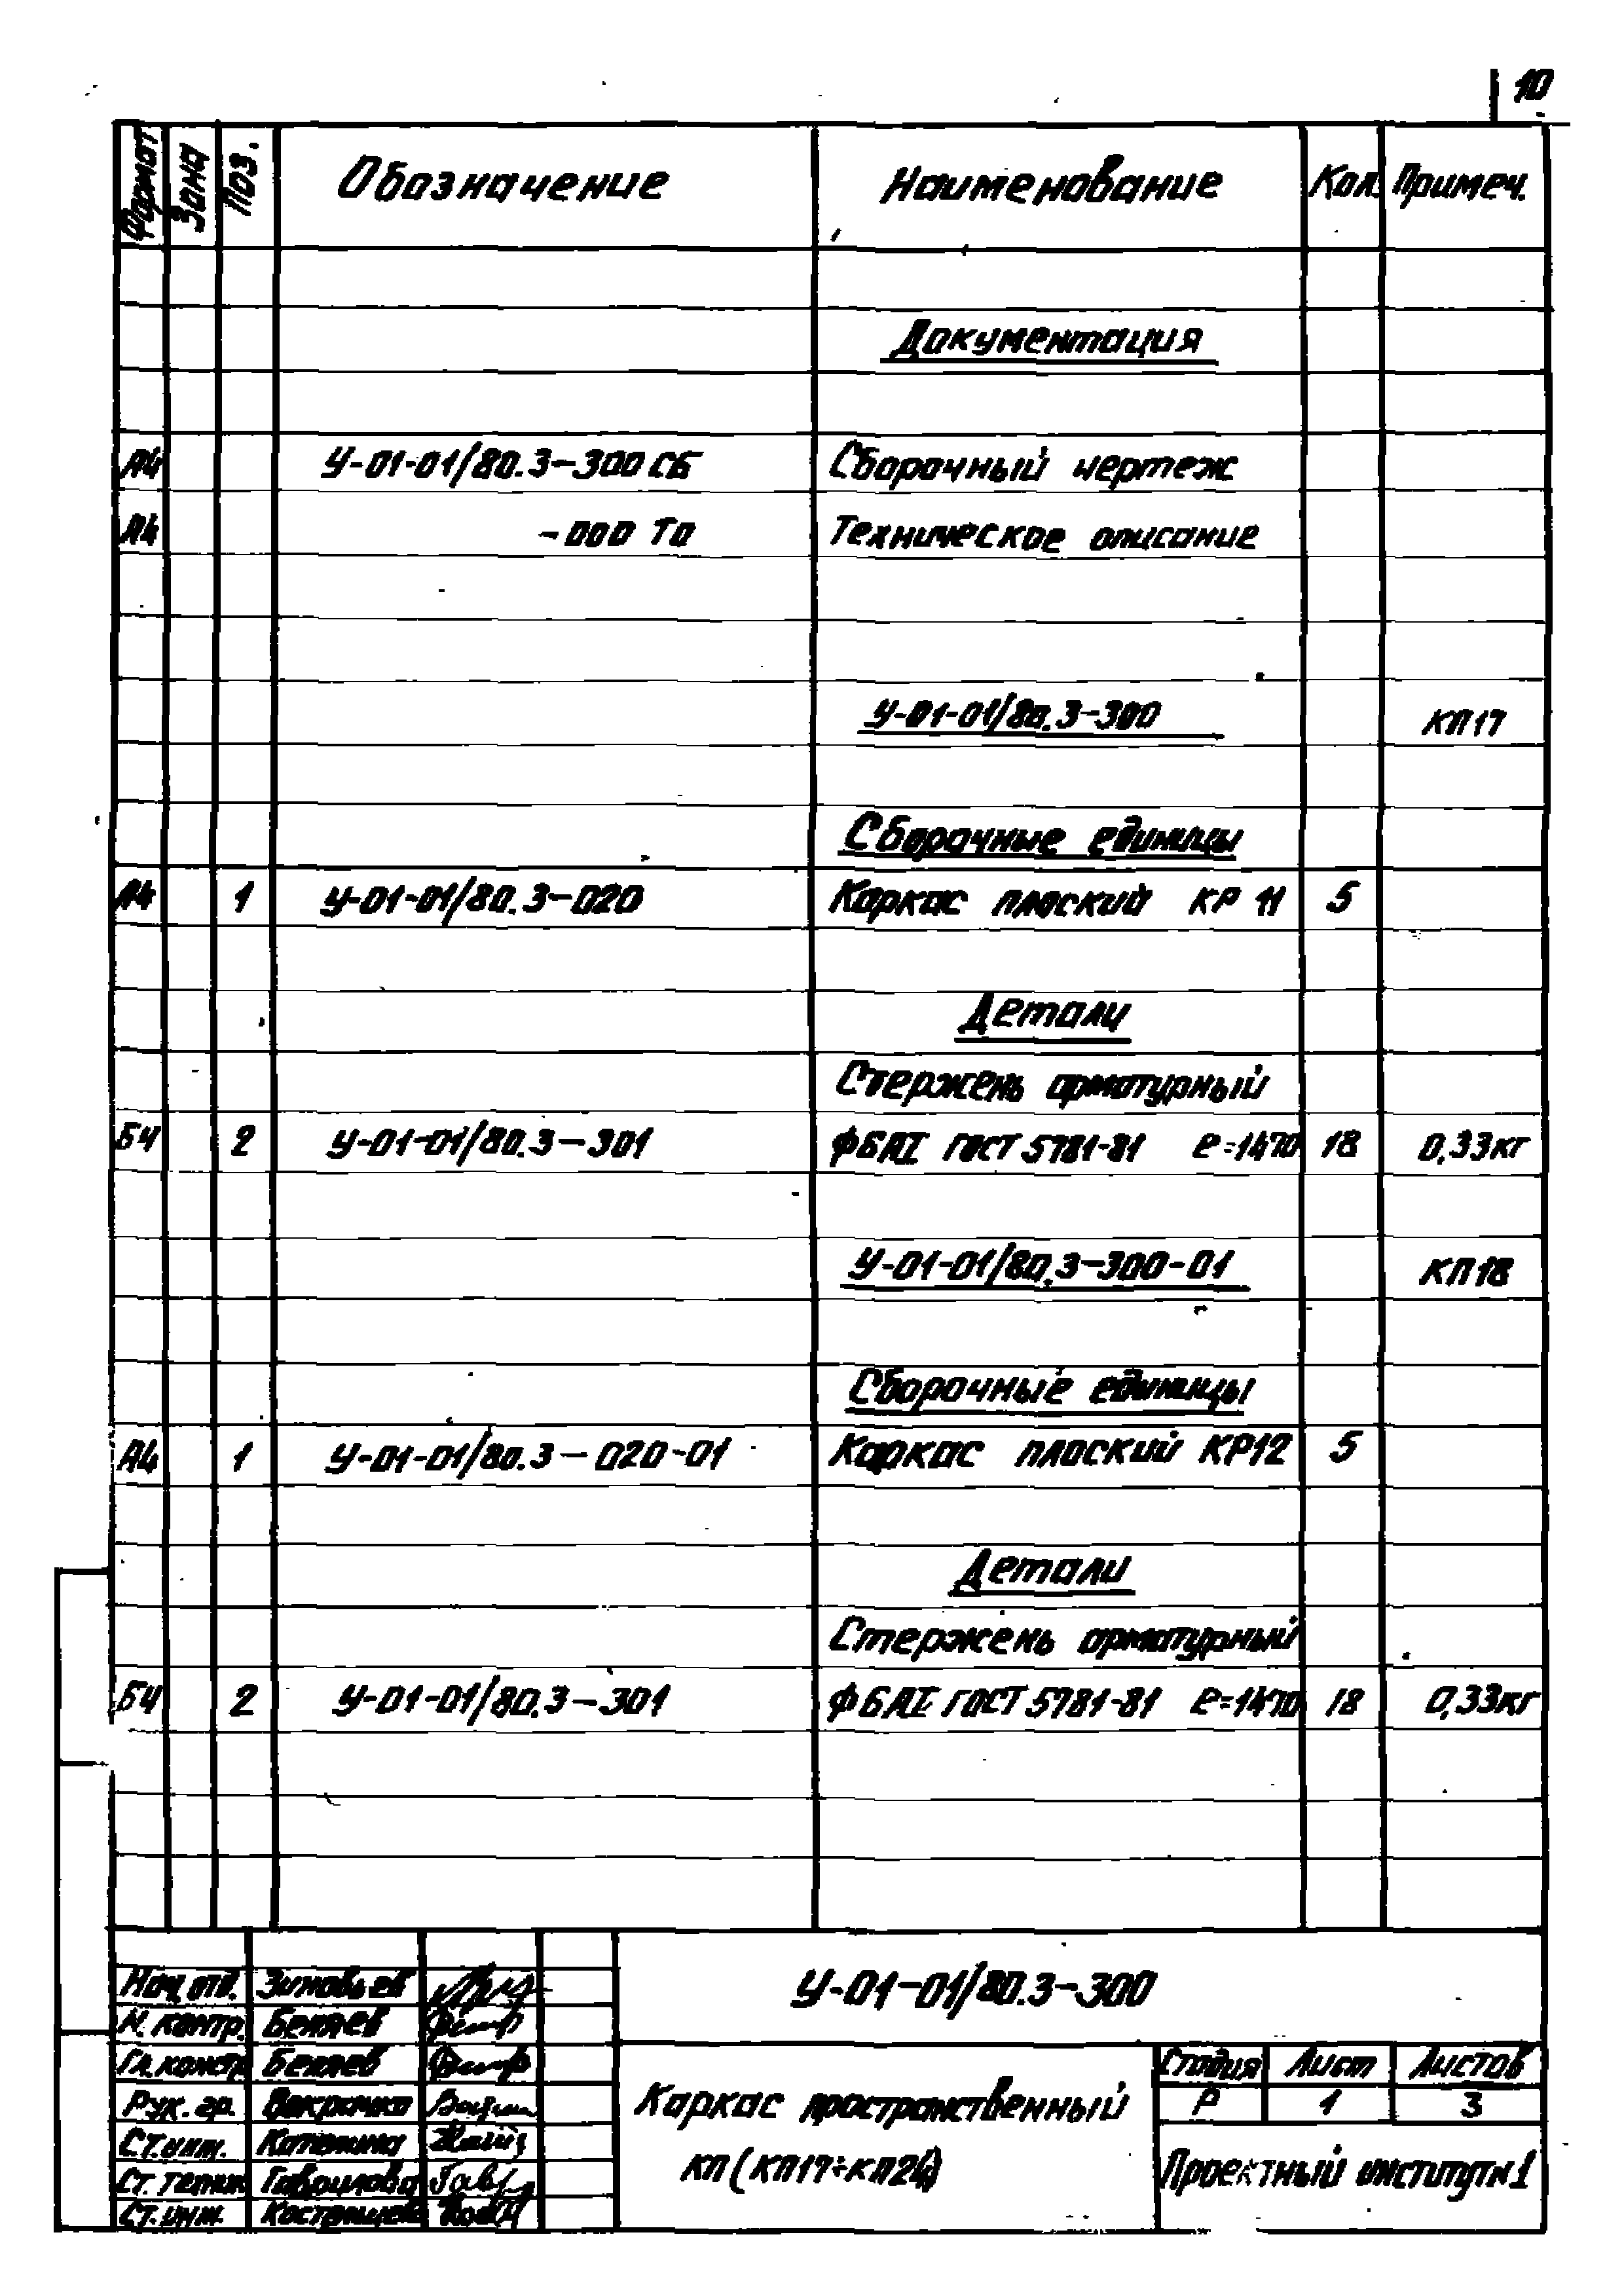 10
Формат Зона Поз. Обозначение Наименование Кол. Примеч.
Документация
А4 У-01-01/80.3-300 СБ Сборочный чертеж
А4 -000 ТО Техническое описание
У-01-01/80.3-300 КП17
Сборочные единицы
А4 1 У-01-01/80.3-020 Каркас плоский КР 11 5
Детали
Стержень арматурный
БЧ 2 У-01-01/80.3-301 Ф6АI ГОСТ 5781-81 ℓ=1470 18 0,33кг
У-01-01/80.3-300-01 КП18
Сборочные единицы
А4 1 У-01-01/80.3-020-01 Каркас плоский КР12 5
Детали
Стержень арматурный
БЧ 2 У-01-01/80.3-301 Ф6АI ГОСТ 5781-81 ℓ=1470 18 0,33кг
Нач. отд. Зиновьев
Н. контр. Беляев
Гл. констр. Беляев
Рук. гр.
Ст. инж.
Ст. техник Гаврилова
Ст. инж.
У-01-01/80.3-300
Каркас пространственный
КП (КП17÷КП24)
Стадия Лист Листов
Р 1 3
Проектный институт №1